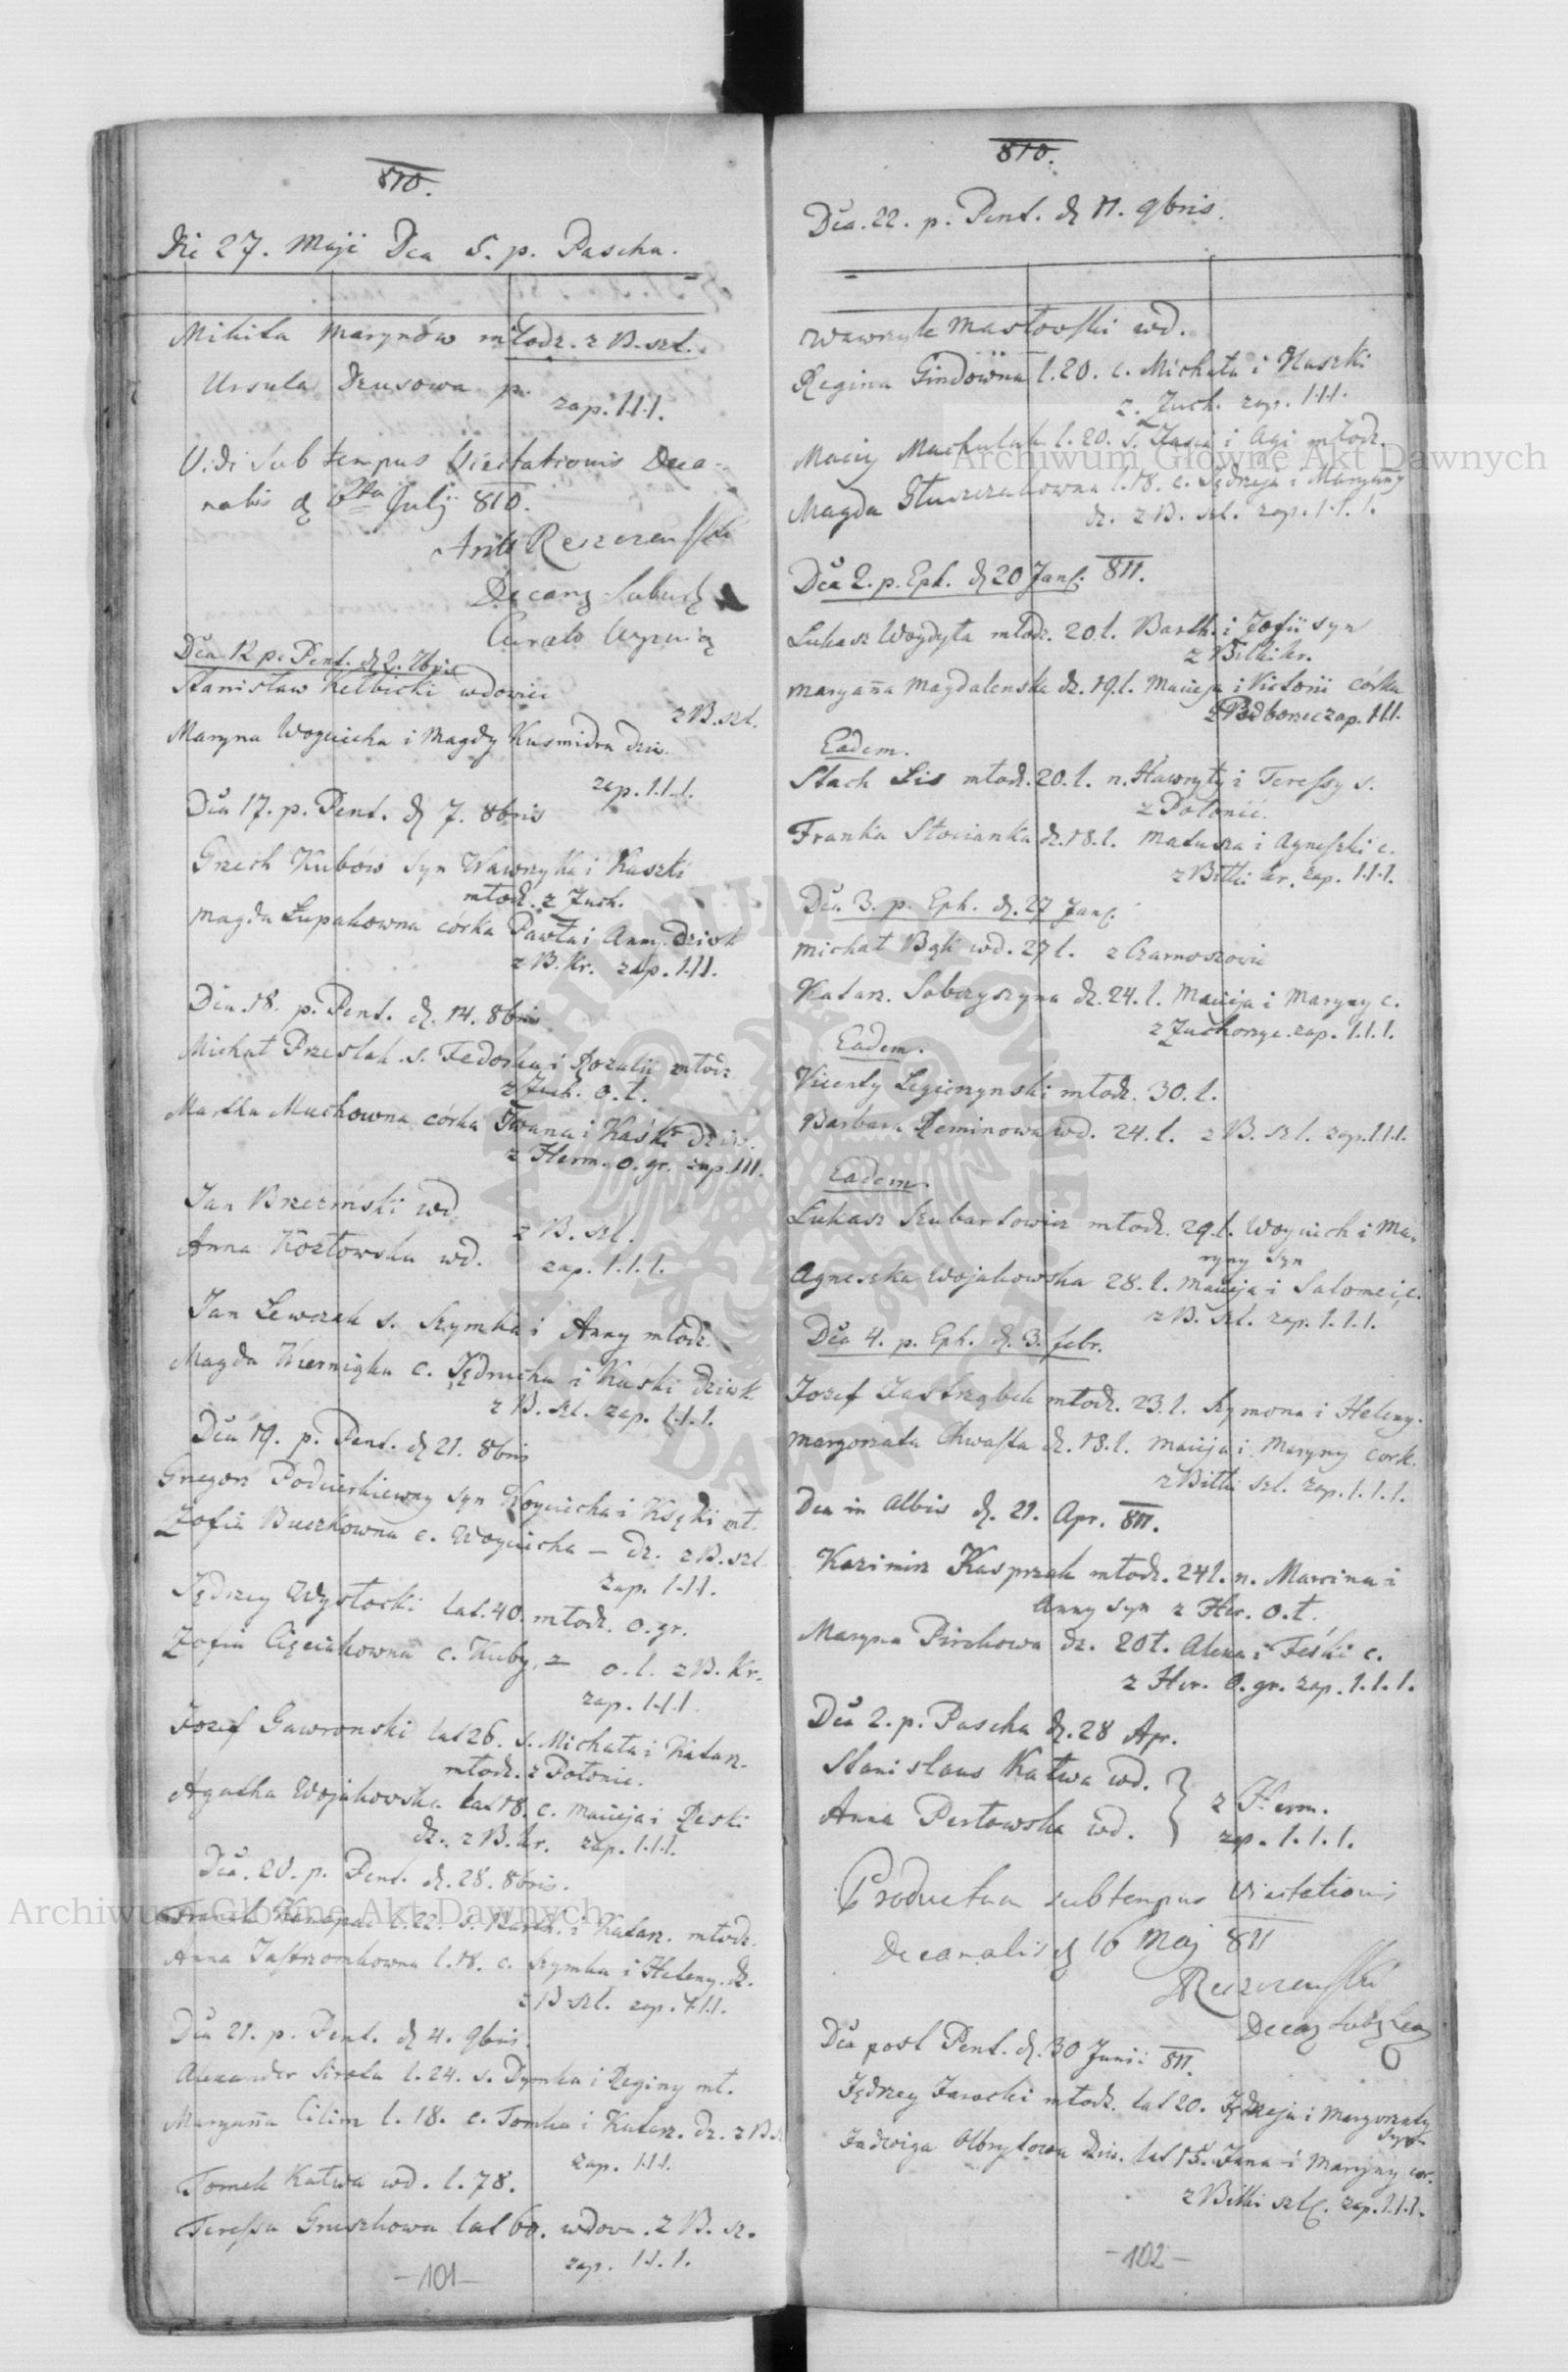 810.
Die 27. Maji Dca 5. p. Pascha.
Mikita Marynów młodz. z B. szl.
Ursula Drusowa p.
zap. 1.1.1.
Vidi sub tempus Visitationis Deca-
nalis d. Julij 810.
Dca 12 p. Pent. d. 2. 7bris
Stanisław Kelbicki wdowiec
z B. szl.
Maryna Woyciecha i Magdy Kusmidra dziw.
zap. 1.1.1.
Dca 17. p. Pent. d. 7. 8bris
Grzech Kubów syn Wawrzyka i Kaszki
młodz. z Zuch.
Magda Łupakowna córka Pawła i Anny Dziwk
z B. Kr. zap. 1.1.1.
Dca 18. p. Pent. d. 14. 8bris
Michał Przeslak s. Fedorka i Rozalii młodz
z Zuch. o. ł.
Martha Muchowna córka Iwana i Kaśki dziw.
z Herm. o. gr. zap. 1.1.1.
Jan Brzezinski wd.
z B. szl.
Anna Kozłowska wd.
zap. 1.1.1.
Jan Lewczak s. Szymka i Anny młodz.
Magda c. Jędrucha i Kaśki dziwk.
z B. szl. zap. 1.1.1.
Dca 19. p. Pent. d. 21. 8bris
Gregorz syn Woyciecha i mł.
Zofia Buczkowna c. Woyciecha — dz. z B. szl.
zap. 1.1.1.
Jędrzey Wysłocki lat. 40. młodz. o. gr.
Zofia c. Kuby, — o. ł. z B. Kr.
zap. 1.1.1.
Jozef Gawronski lat 26. s. Michała i Katarz.
młodz. z Połonic.
Agatha Wojakowska lat 18. c. Macieja i Reski
dz. z B. kr. zap. 1.1.1.
Dca. 20. p. Pent. d. 28. 8bris.
Franek Kanapac l. 22. s. Barth. i Katarz. młodz.
Anna Jastrzombkowna l. 18. c. Szymka i Heleny. dz.
z B szl. zap. 1.1.1.
Dca 21. p. Pent. d. 4. 9bris.
Alexander Sirota l. 24. s. Dymka i Reginy mł.
Maryanna Cilim l. 18. c. Tomka i Katarz. dz. z B. s
zap. 1.1.1.
Tomek Katwa wd. l. 78.
Teressa Gruszkowa lat 60. wdowa. z B. sz.
zap. 1.1.1.
-101-
810.
Dca. 22. p. Pent. d. 11. 9bris.
Wawrzyk Masłowski wd.
Regina Gindowna l. 20. c. Michała i Naszki
z. Zuch. zap. 1.1.1.
Maciey Machulak l. 20. s. Jasia i Agi młodz.
Magda Głuszczakowna l. 18. c. Jędrzeja i Maryanny
dz. z B. szl. zap. 1.1.1.
Dca 2. p. Eph. d. 20 Jan. 811.
Łukasz Woydyła młodz. 20. l. Barth. i Zofii syn
z Bitki kr.
Maryanna Magdalenska dz. 19. l. Macieja i Victorii córka
z Podborzec zap. 1.1.1.
Eadem.
Stach Lis młodz. 20. l. n. Hawryły i Teressy s.
z Połonic.
Franka Stocianka dz. 18. l. Matusza i Agneszki c.
z Bitki kr. zap. 1.1.1.
Dca. 3. p. Eph. d. 27 Jan.
Michał Bąk wd. 27 l. z Czarnoszowic
Katarz. Sobczyszyna dz. 24. l. Macieja i Maryny c.
z Zuchorzyc. zap. 1.1.1.
Eadem.
Vicenty Legiezynski młodz. 30. l.
Barbara Reminowa wd. 24. l. z B. szl. zap. 1.1.1.
Eadem.
Łukasz Szubartowicz młodz. 29. l. Woyciech i Ma-
ryny syn
Agneszka Wojakowska 28. l. Macieja i Salomei c.
z B. szl. zap. 1.1.1.
Dca 4. p. Eph. d. 3. febr.
Jozef Jastrzębek młodz. 23. l. Szymona i Heleny.
Margorzata Chwasta dz. 18. l. Macieja i Maryny cork.
z Bitki szl. zap. 1.1.1.
Dca in Albis d. 21. Apr. 811.
Kazimirz Kasprzak młodz. 24 l. n. Marcina i
Anny syn z Her. o. ł.
Maryna Pirchowa dz. 20 ł. Alexa i Feśki c.
z Her. o. gr. zap. 1.1.1.
Dca 2. p. Pascha d. 28 Apr.
Stanislaus Katwa wd. } z Herm.
Anna Pertowska wd. } zap. 1.1.1.
Productum sub tempus Visitationis
Decanalis d. 16 Maj 811
Dca post Pent. d. 30 Junii 811.
Jędrzey Jarocki młodz. lat 20. Jędrzeja i Margorzaty
syn
Jadwiga Olbrytowna dziw. lat 15. Jana i Maryny cor.
z Bitki szl. zap. 1.1.1.
-102-
Archiwum Główne Akt Dawnych
Archiwum Główne Akt Dawnych
ARCHIWUM GŁÓWNE AKT DAWNYCH